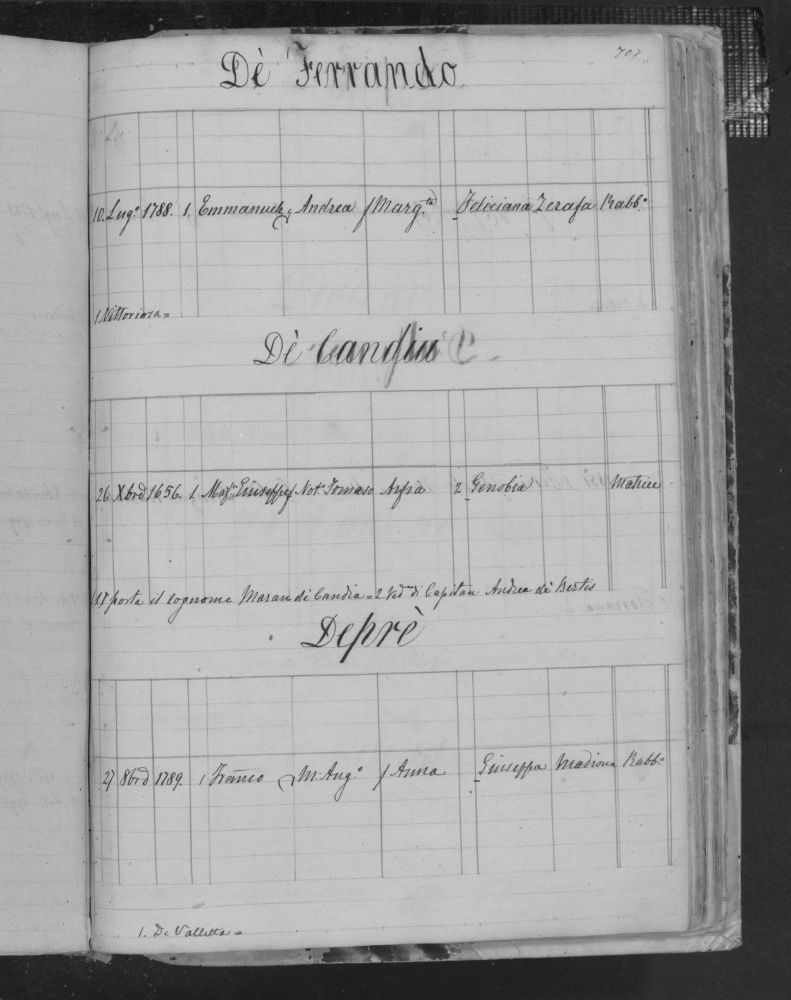 707
Dè Ferrando
10. Lug.º 1788. 1. Emmanuele q Andrea f Marg.ta Feliciana Zerafa Rabb.º
1. Vittoriosa =
Dè Candia
26 Xbrd 1656. 1. Mag.co Giuseppe f Not.º Tomaso Arfia 2 Genobia Matrice
1. porta il cognome Maran dè Candia = 2. Ved.a di Capitan Andrea dè Bertis
Deprè
27 8brd 1789. 1 Franco q M: Ang.º f Anna Giuseppa Madiona Rabb.º
1. Da Valletta =